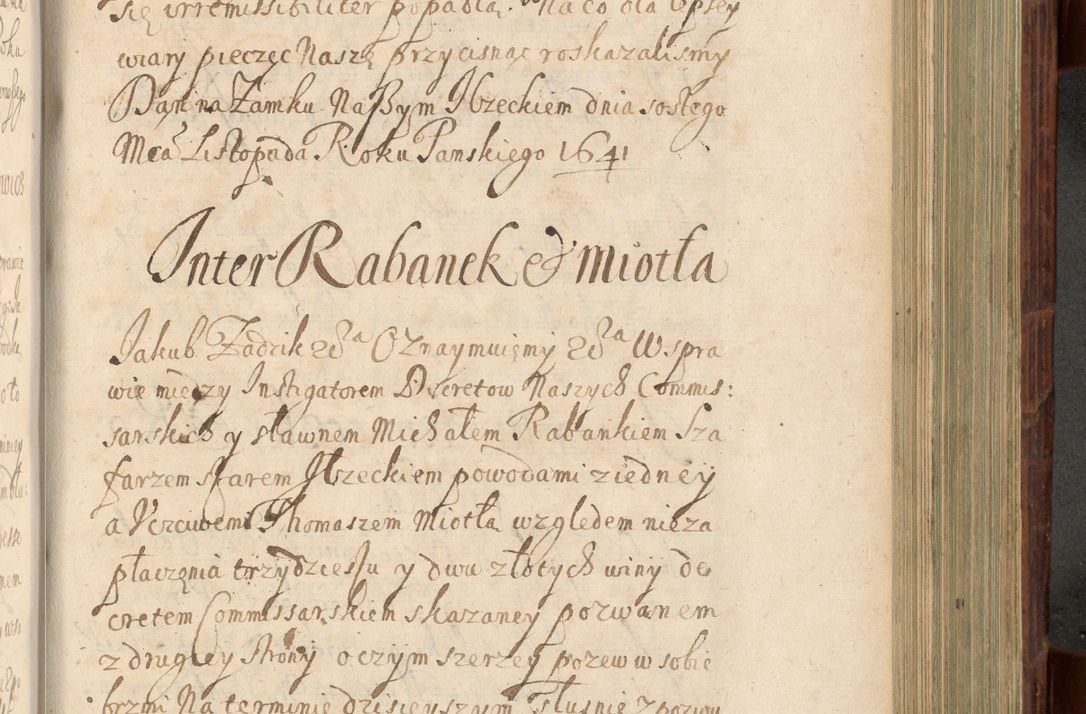 się irremissibiliter popadła. Na co dla lepsey
wiary pieczęc Naszą przycisnąc roskazalismy
Dan na Zamku Naszym Ilzeckiem dnia sostego
Mca Listopada Roku Panskiego 1641
Inter Rabanek & Miotła
Jakub Zadzik &c Oznaymuięmy &c W spra
wie między Instigatorem Decretow Naszych Commis:
sarskich y sławnem Michałem Rabankiem Sza
farzem starem Ilzeckiem powodami z iedney
a Vczciwem Thomaszem Miotłą względem nieza
płacęnia trzydziestu y dwu złotych winy de
cretem Commissarskiem skazaney pozwanem
z drugiey strony o czym szerzey pozew w sobie
brzmi Na terminie dzisieyszym słusnie z pozwu